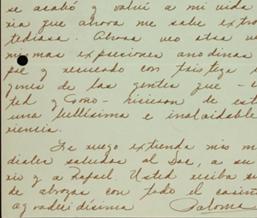 se acabó y volví a mi vida
ria que ahora me sabe extra
Ahora veo esta
mismas expresiones anodinas
pre y recuerdo con tristeza
gunos de las gentes que -
ted y Goño - hicieron de est
una bellísima e inolvidable
riencia.
Le ruego extienda mis m
diales saludos al Doc, a su
río y a Rafael. Usted reciba su
de abrazos con todo el cariño
agradecidísima Paloma